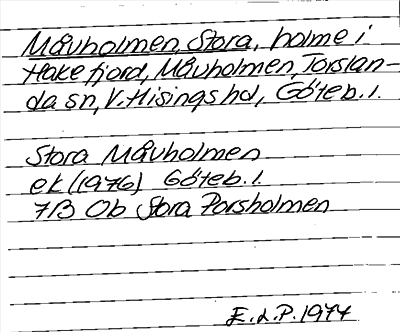 Måvholmen, Stora, holme i
Hakefjord, Måvholmen, Torslan-
da sn, V. Hisings hd, Göteb. l.
Stora Måvholmen
ek (1976) Göteb. l.
7B Ob Stora Porsholmen
E. d. P. 1974